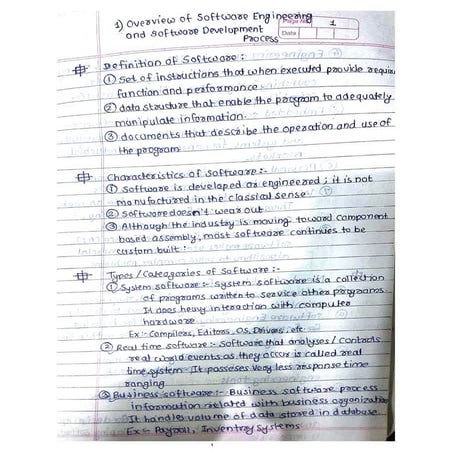 1) Overview of Software Engineering
and Software Development
Process
Page No. 1
Date
Definition of Software :-
① Set of instructions that when executed provide require
function and performance
② data structure that enable the program to adequately
manipulate information.
③ documents that describe the operation and use of
the program
Characteristics of Software :-
① Software is developed or engineered ; it is not
manufactured in the classical sense
② Software doesn't wear out
③ Although the industry is moving toward component
based assembly, most software continues to be
custom built.
Types / Categories of Software :-
① System software :- System software is a collection
of programs written to service other programs.
It does heavy interaction with computer
hardware
Ex :- Compilers, Editors, OS, Drivers, etc
② Real time software :- Software that analyses / Controls
real world events as they occur is called real
time system. It posseses very less response time
ranging
③ Business software :- Business software process
information related with business organization
It handles volume of data stored in database.
Ex :- Payroll, Inventry Systems
1